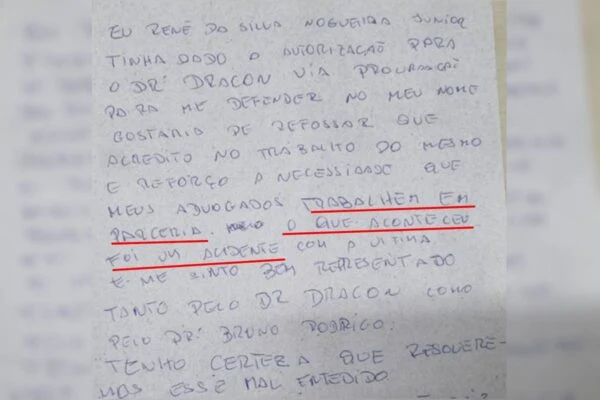 EU RENÊ DA SILVA NOGUEIRA JUNIOR
TINHA DADO A AUTORIZAÇÃO PARA
O DR: DRACON VIA PROCURAÇÃO
PARA ME DEFENDER NO MEU NOME
GOSTARIA DE REFOSSAR QUE
ACREDITO NO TRABALHO DO MESMO
E REFORÇO A NECESSIDADE QUE
MEUS ADVOGADOS TRABALHEM EM
PARCERIA. O QUE ACONTECEU
FOI UM ACIDENTE COM A VITIMA
E ME SINTO BEM REPRESENTADO
TANTO PELO DR DRACON COMO
PELO DR: BRUNO RODRIGO.
TENHO CERTEZA QUE RESOLVERE-
MOS ESSE MAL ENTEDIDO